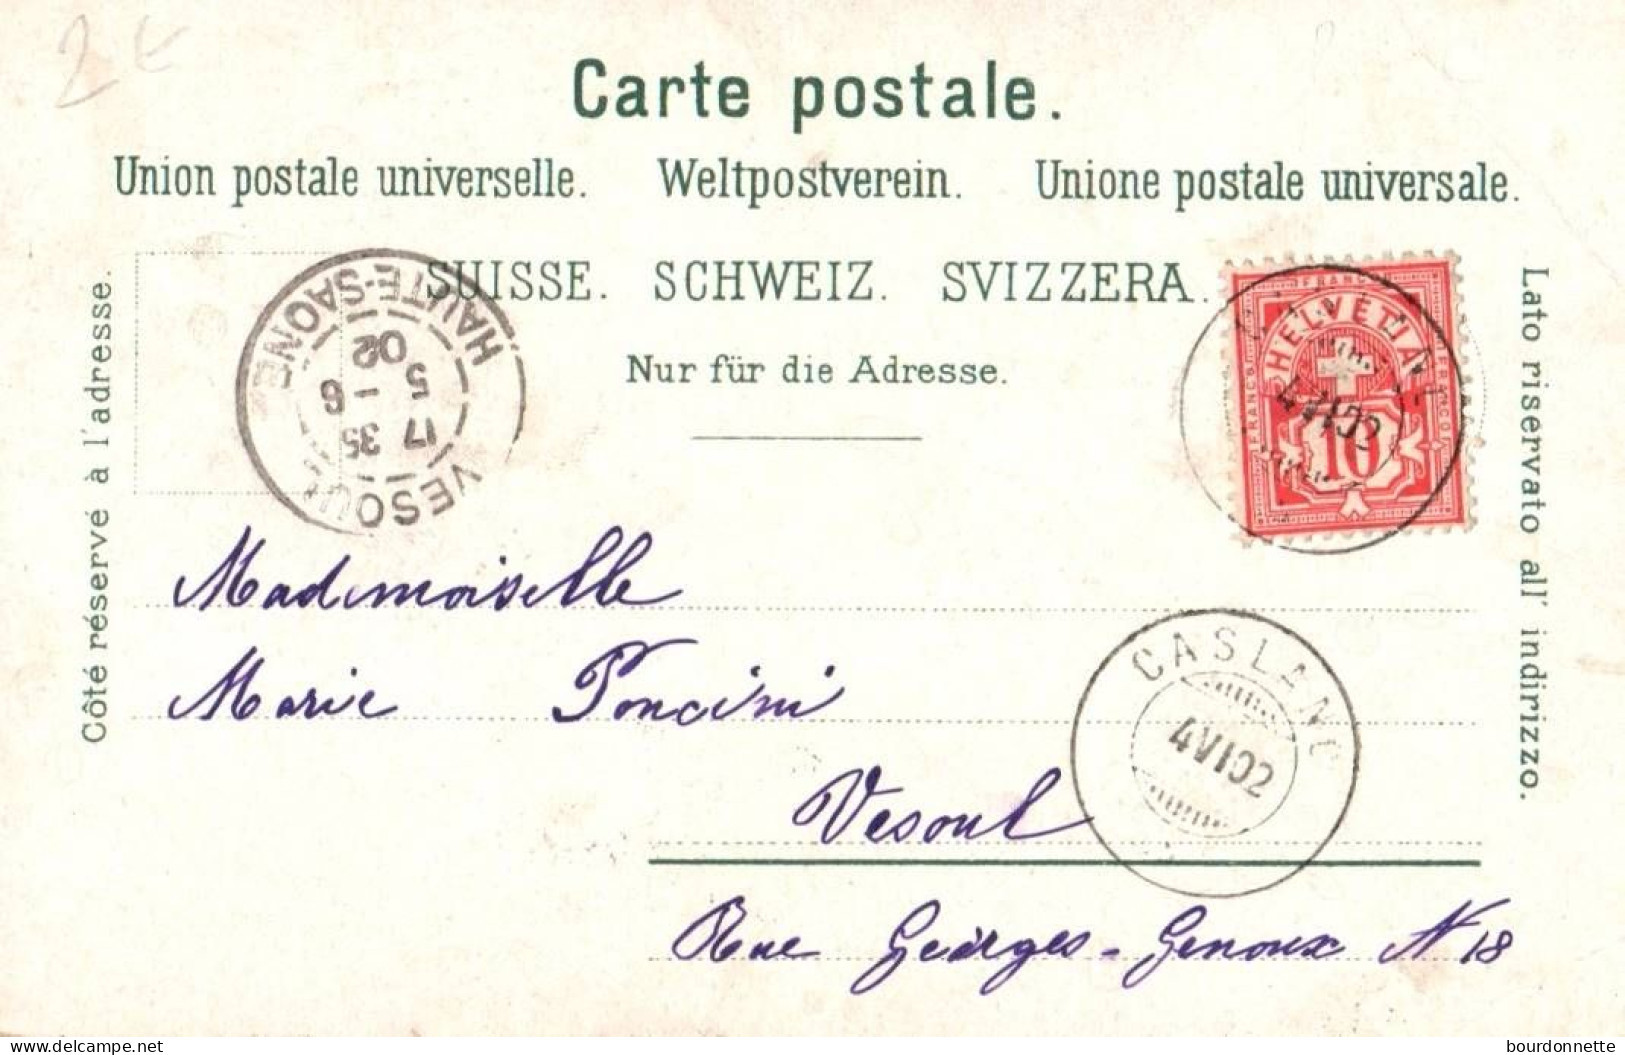 2 €
Carte postale.
Union postale universelle. Weltpostverein. Unione postale universale.
SUISSE. SCHWEIZ. SVIZZERA.
Nur für die Adresse.
Côté réservé à l'adresse.
Lato riservato all' indirizzo.
VESOUL
17 35
5 - 6
02
HAUTE-SAONE
FRANCO
HELVETIA
FRANCO
FRANCO
10
4 VI 02
Mademoiselle
Marie Poncini
Vesoul
Rue Georges-Genoux N 18
CASLANO
4 VI 02
bourdonnette